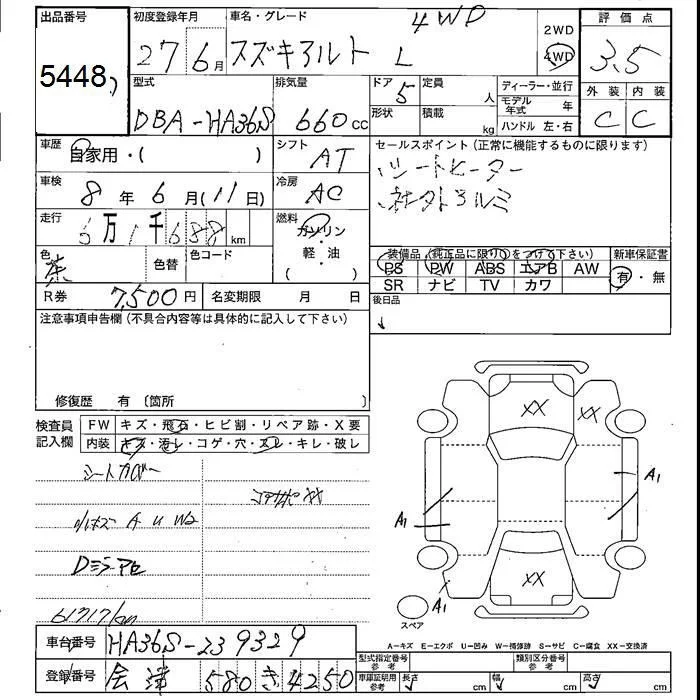 出品番号
5448
初度登録年月
27 6月
車名・グレード
スズキアルト L 4WD
2WD
4WD
評価点
3.5
外装 内装
C C
型式
DBA-HA36S
排気量
660cc
ドア
5
形状
定員
人
積載
kg
ディーラー・並行
モデル年式 年
ハンドル 左・右
車歴
自家用・( )
シフト
AT
車検
8年 6月(11日)
冷房
AC
走行
6万1千688km
燃料
ガソリン・
軽・油
( )
色
茶
色替
色コード
R券
7,500円
名変期限 月 日
セールスポイント(正常に機能するものに限ります)
シートヒーター
社外アルミ
装備品(純正品に限り○をつけて下さい)
PS PW ABS エアB AW
SR ナビ TV カワ
新車保証書
有・無
後日品
注意事項申告欄(不具合内容等は具体的に記入して下さい)
修復歴 有〔箇所 〕
検査員
記入欄
FW キズ・飛石・ヒビ割・リペア跡・X要
内装 キズ・汚レ・コゲ・穴・スレ・キレ・破し
シートカバー
コアサポXX
小キズ A U W2
61717km
XX XX
A1
A1
XX
A1
スペア
A-キズ E-エクボ U-凹み W-補修跡 S-サビ C-腐食 XX-交換済
車台番号
HA36S-239329
登録番号
会津 580 き 4250
型式指定番号
参考
類別区分番号
参考
車庫証明用
参考
長さ cm 幅 cm 高さ cm